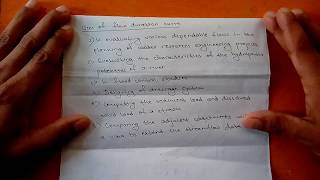 Uses of flow duration curve
1) In evaluating various dependable flows in the
planning of water resources engineering projects
2) Evaluating the characteristics of the hydropower
potential of a river
3) In flood control studies
4) Designing of drainage system
5) Computing the sediment load and dissolved
solid load of a stream
6) Comparing the adjacent catchments with
a view to extend the streamflow data